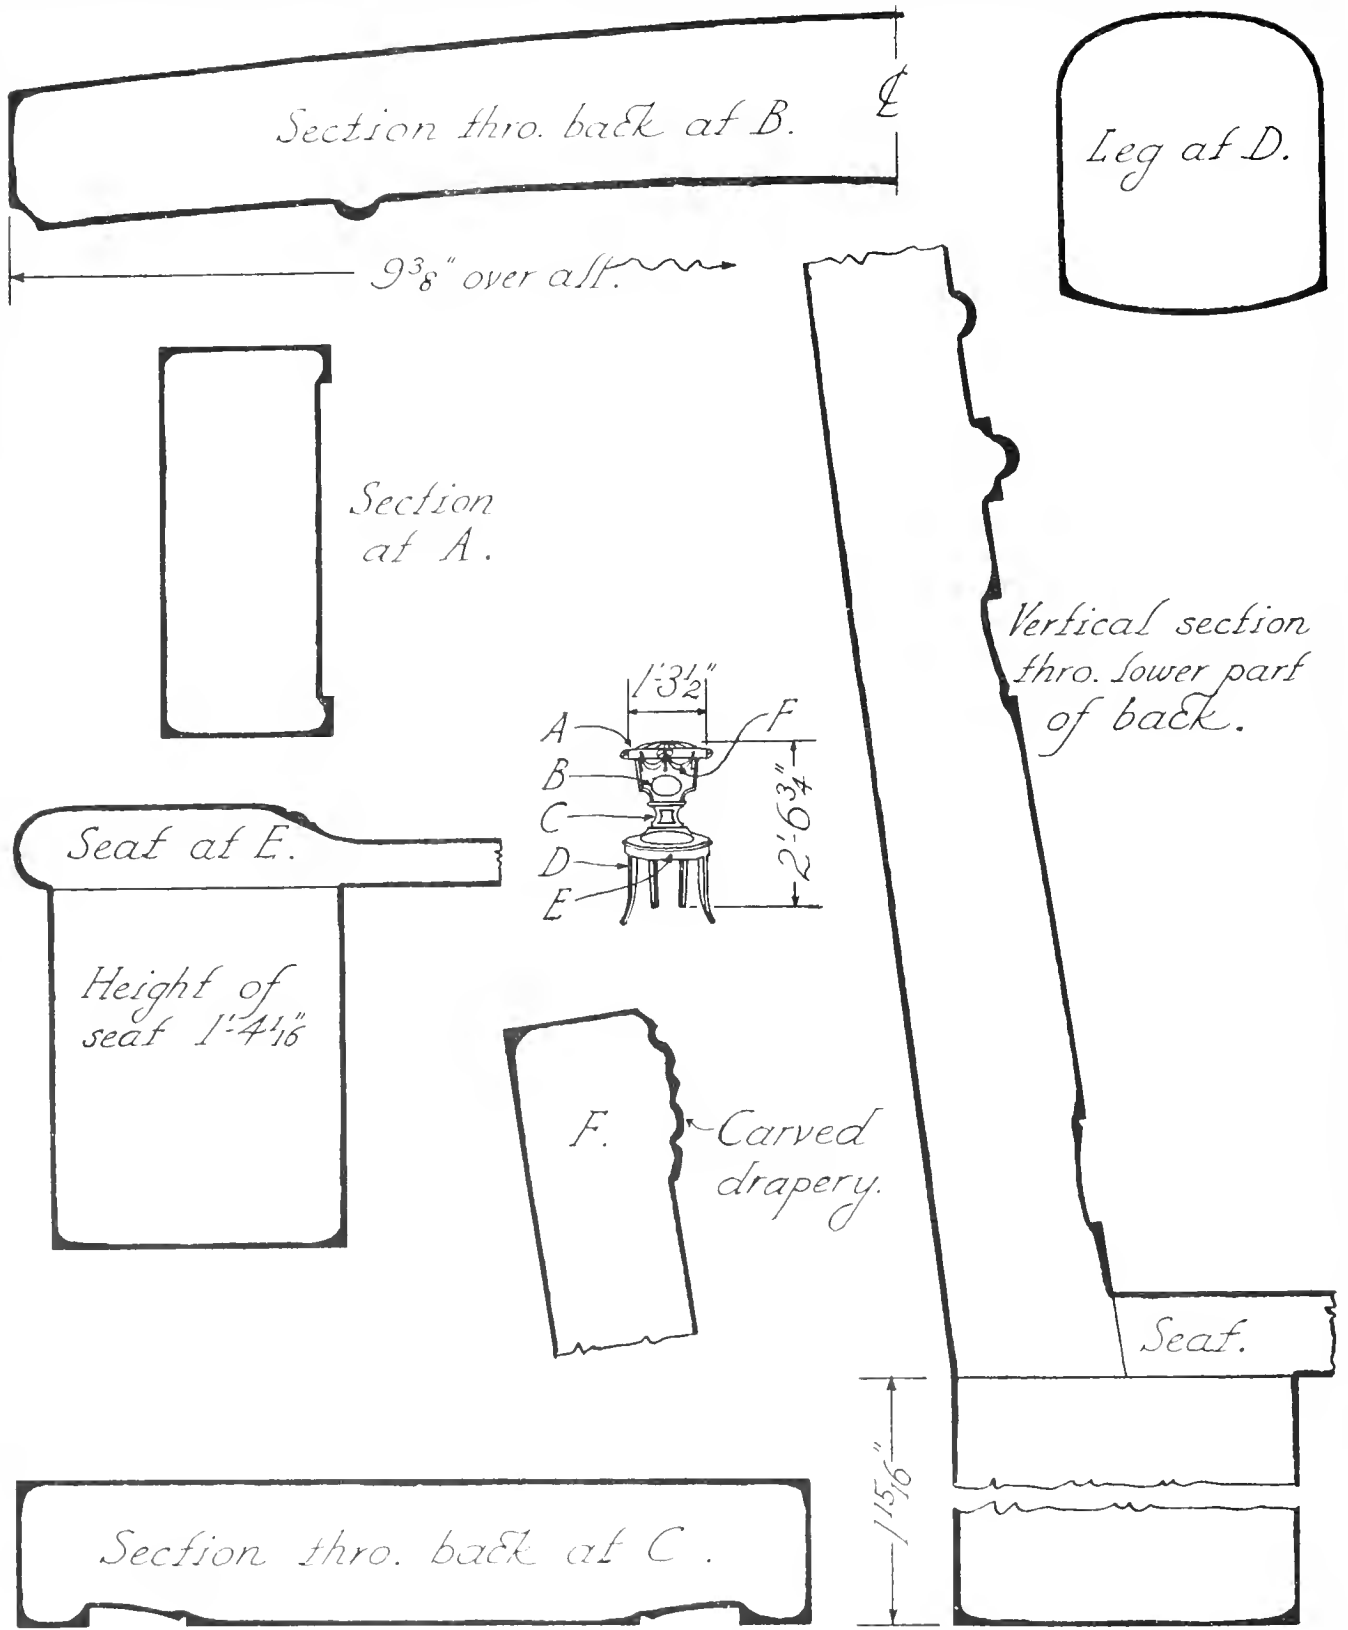 Section thro. back at B.
℄
Leg at D.
9 3/8" over all.
Section
at A.
Vertical section
thro. lower part
of back.
1'-3 1/2"
A
F
B
C
D
E
2'-6 3/4"
Seat at E.
Height of
seat 1'-4 1/16"
F.
Carved
drapery.
Seat.
1 15/16"
Section thro. back at C.